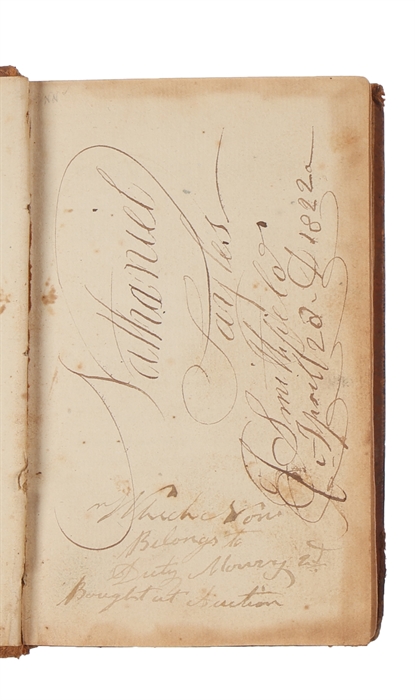 Nathaniel
Sayles
Smithfield
April 2d AD 1822
Which Now
Belongs to
Duty Mowry 2d
Bought at Auction